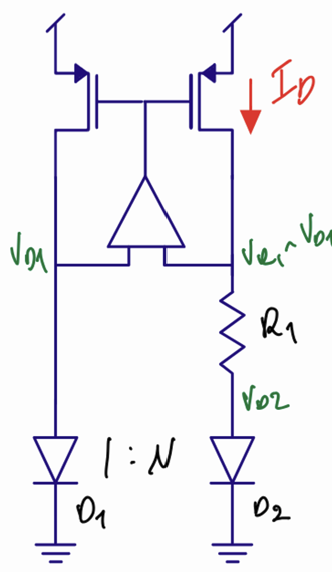 I_D
V_D1
V_R1 ~ V_D1
R1
V_D2
1 : N
D1
D2